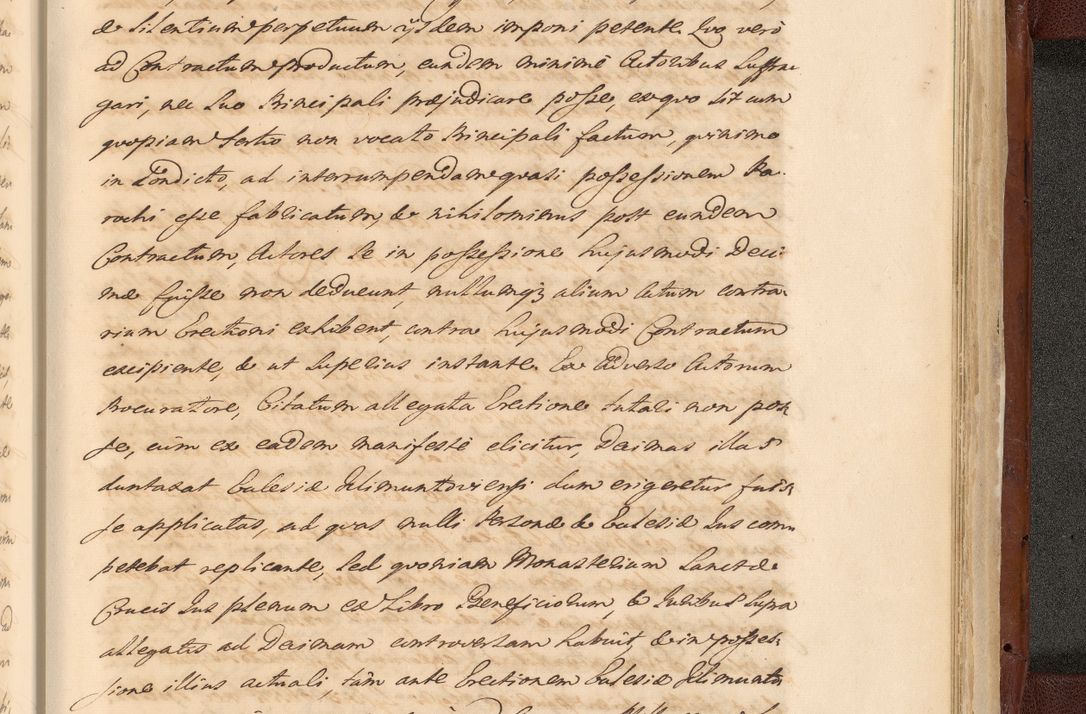 & silentium perpetuum ijsdem imponi petente. Quo verò
ad Contractum productum, eundem minimè Actoribus suffra-
gari, nec suo Principali præjudicare posse, ex quo sit cum
quopiam tertio non vocato Principali factum, quinimo
in Condicto, ad interrumpendam quasi possessionem Pa-
rochi esse fabricatum, & nihilominus post eundem
Contractum, Actores se in possessione hujusmodi Deci-
mæ fuisse non deducunt, nullumq; alium Actum contra-
rium Erectioni exhibent, contra hujusmodi Contractum
excipiente, & ut superius instante. Ex adverso Actorum
Procuratore, Citatum allegata Erectione tutari non pos-
se, cùm ex eadem manifestè elicitur, Decimas illas
duntaxat Ecclesiæ Klimuntoviensi dum erigeretur fuis-
se applicatas, ad quas nulli Personæ & Ecclesiæ Jus com-
petebat replicante, sed quoniam Monasterium Sanctæ
Crucis Jus plenum ex Libro Beneficiorum, & Juribus supra
allegatis ad Decimam controversam habuit, & in posses-
sione illius actuali, tàm ante Erectionem Ecclesiæ Klimunto